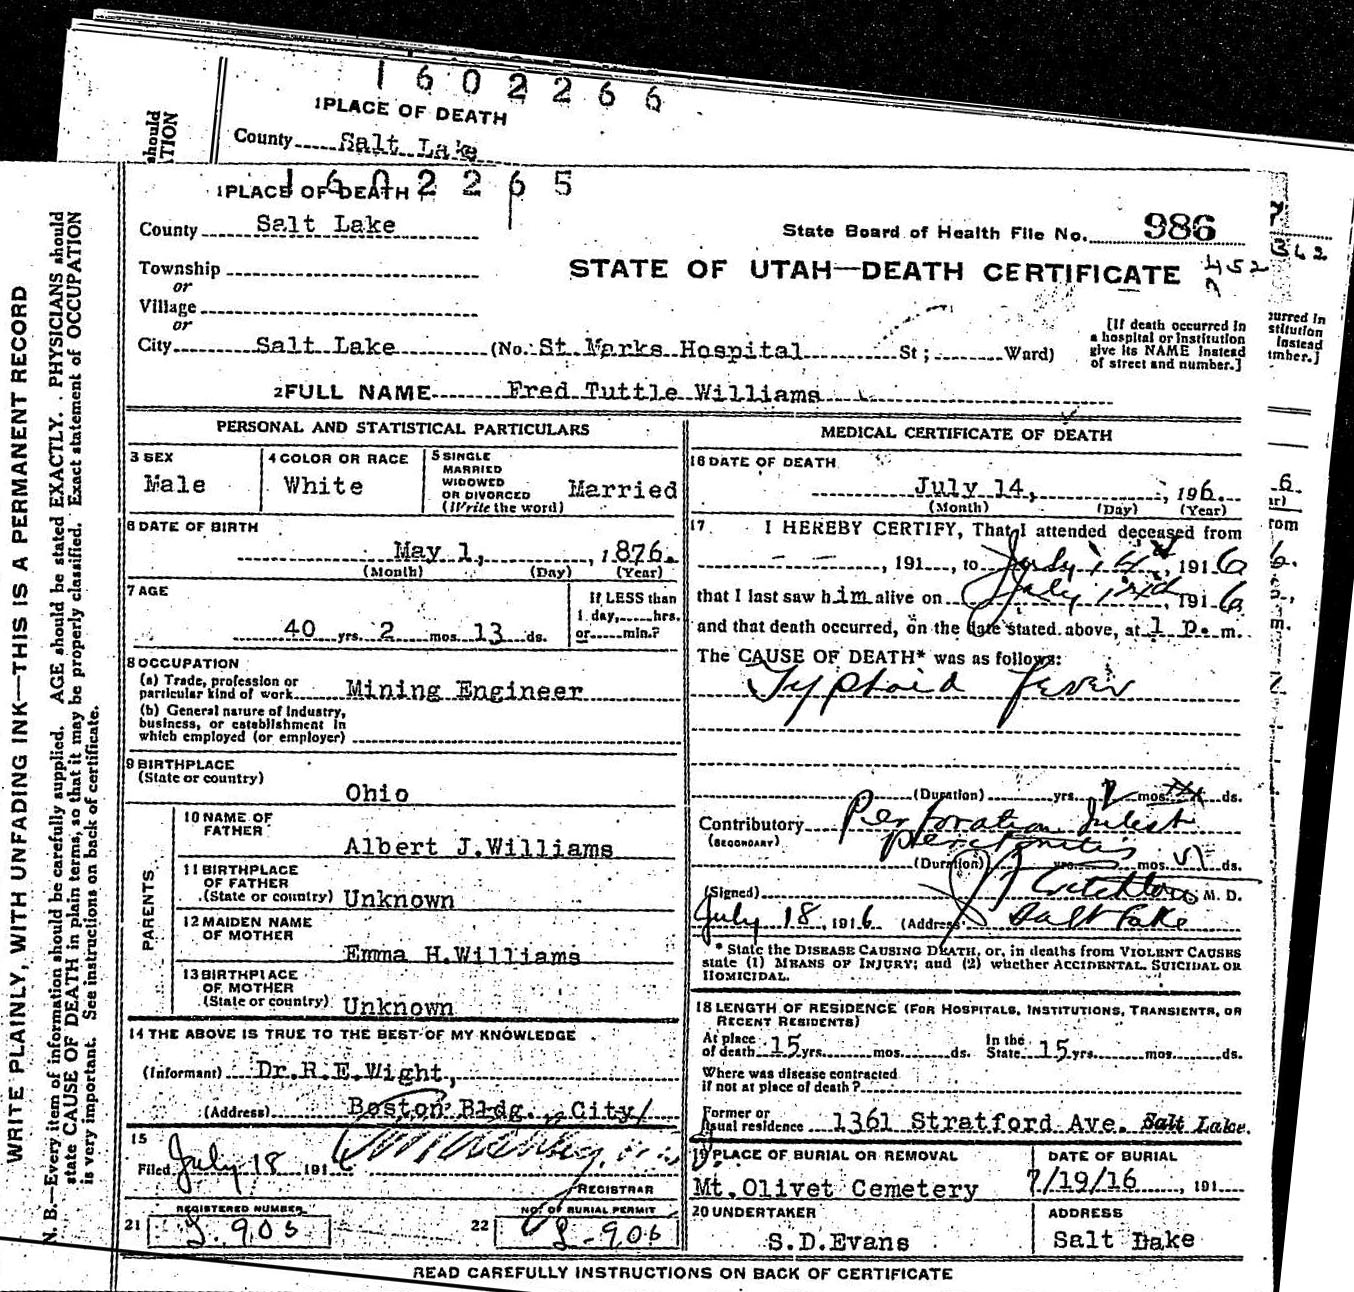 1602266
1 PLACE OF DEATH
County Salt Lake
should
ATION
1602265
1 PLACE OF DEATH
County Salt Lake
State Board of Health File No. 986
STATE OF UTAH—DEATH CERTIFICATE
452
362
Township
or
Village
or
City Salt Lake (No. St Marks Hospital St; Ward)
[If death occurred in
a hospital or institution
give its NAME instead
of street and number.]
2 FULL NAME Fred Tuttle Williams
PERSONAL AND STATISTICAL PARTICULARS
3 SEX
Male
4 COLOR OR RACE
White
5 SINGLE
MARRIED
WIDOWED
OR DIVORCED
(Write the word)
Married
6 DATE OF BIRTH
May 1, , 1876.
(Month) (Day) (Year)
7 AGE
40 yrs. 2 mos. 13 ds.
If LESS than
1 day, hrs.
or min.?
8 OCCUPATION
(a) Trade, profession or
particular kind of work Mining Engineer
(b) General nature of industry,
business, or establishment in
which employed (or employer)
9 BIRTHPLACE
(State or country)
Ohio
PARENTS
10 NAME OF
FATHER
Albert J.Williams
11 BIRTHPLACE
OF FATHER
(State or country) Unknown
12 MAIDEN NAME
OF MOTHER
Emma H.Williams
13 BIRTHPLACE
OF MOTHER
(State or country) Unknown
14 THE ABOVE IS TRUE TO THE BEST OF MY KNOWLEDGE
(Informant) Dr.R.E.Wight,
(Address) Boston Bldg., City/
15
Filed July 18 1916
REGISTRAR
21 REGISTERED NUMBER
905
22 NO. OF BURIAL PERMIT
906
MEDICAL CERTIFICATE OF DEATH
16 DATE OF DEATH
July 14, , 196.
(Month) (Day) (Year)
17. I HEREBY CERTIFY, That I attended deceased from
, 191 , to July 14, 1916
that I last saw him alive on July, 1916
and that death occurred, on the date stated above, at 1 p. m.
The CAUSE OF DEATH* was as follows:
Typhoid fever
(Duration) yrs. mos. ds.
Contributory Perforation
(SECONDARY) peritonitis
(Duration) yrs. mos. ds.
(Signed) M. D.
July 18, 1916 (Address) Salt Lake
* State the DISEASE CAUSING DEATH, or, in deaths from VIOLENT CAUSES
state (1) MEANS OF INJURY; and (2) whether ACCIDENTAL, SUICIDAL OR
HOMICIDAL.
18 LENGTH OF RESIDENCE (FOR HOSPITALS, INSTITUTIONS, TRANSIENTS, OR
RECENT RESIDENTS)
At place
of death 15 yrs. mos. ds.
In the
State 15 yrs. mos. ds.
Where was disease contracted
if not at place of death?
Former or
usual residence 1361 Stratford Ave. Salt Lake.
19 PLACE OF BURIAL OR REMOVAL
Mt.Olivet Cemetery
DATE OF BURIAL
7/19/16 , 191
20 UNDERTAKER
S.D.Evans
ADDRESS
Salt Lake
READ CAREFULLY INSTRUCTIONS ON BACK OF CERTIFICATE
WRITE PLAINLY, WITH UNFADING INK—THIS IS A PERMANENT RECORD
N. B.—Every item of information should be carefully supplied. AGE should be stated EXACTLY. PHYSICIANS should
state CAUSE OF DEATH in plain terms, so that it may be properly classified. Exact statement of OCCUPATION
is very important. See instructions on back of certificate.